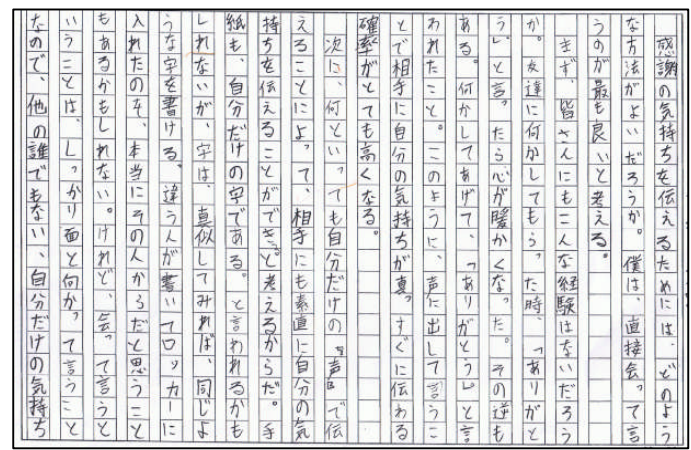 感謝の気持ちを伝えるためには、どのよう
な方法がよいだろうか。僕は、直接会って言
うのが最も良いと考える。
まず、皆さんにもこんな経験はないだろう
か。友達に何かしてもらった時、「ありがと
う」と言ったら心が暖かくなった。その逆も
ある。何かしてあげて、「ありがとう」と言
われたこと。このように、声に出して言うこ
とで相手に自分の気持ちが真っすぐに伝わる
確率がとても高くなる。
次に、何といっても自分だけの『声』で伝
えることによって、相手にも素直に自分の気
持ちを伝えることができると考えるからだ。手
紙も、自分だけの字である。と言われるかも
しれないが、字は、真似してみれば、同じよ
うな字を書ける。違う人が書いてロッカーに
入れたのを、本当にその人からだと思うこと
もあるかもしれない。けれど、会って言うと
いうことは、しっかり面と向かって言うこと
なので、他の誰でもない、自分だけの気持ち